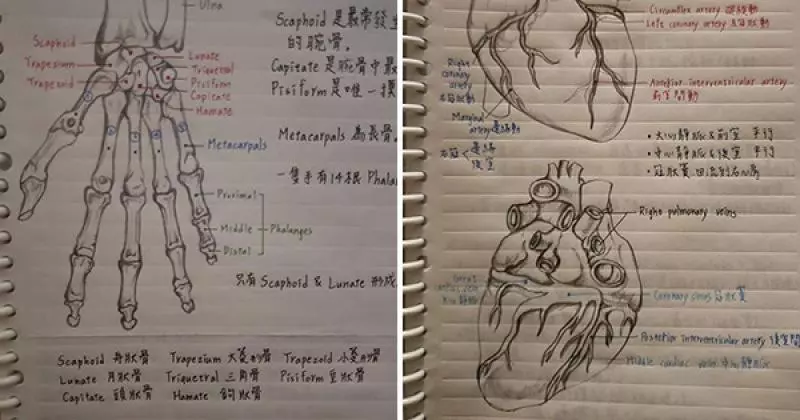 Ulna
Scaphoid
Trapezium
Trapezoid
Lunate
Triquetral
Pisiform
Capicate
Hamate
Metacarpals
Proximal
Middle
Distal
Phalanges
Scaphoid 是最常發生
的腕骨。
Capitate 是腕骨中最
Pisiform 是唯一
Metacarpals 為長骨。
一隻手有14根 Phala
只有 Scaphoid & Lunate 形成
Scaphoid 舟狀骨 Trapezium 大菱形骨 Trapezoid 小菱形骨
Lunate 月狀骨 Triquetral 三角骨 Pisiform 豆狀骨
Capitate 頭狀骨 Hamate 鉤狀骨
Circumflex artery
Left coronary artery 左冠狀動
Right
coronary
artery
右冠狀動
Marginal
artery 邊緣動
Anterior interventricular artery
前室間動
右冠 < 邊緣
後室
• 大心靜脈&前室 平行
• 中心靜脈&後室 平行
• 冠狀竇 回流到右心房
Right pulmonary veins
Great
Coronary sinus 冠狀竇
Posterior interventricular artery 後室間
Middle cardiac vein 中心靜脈